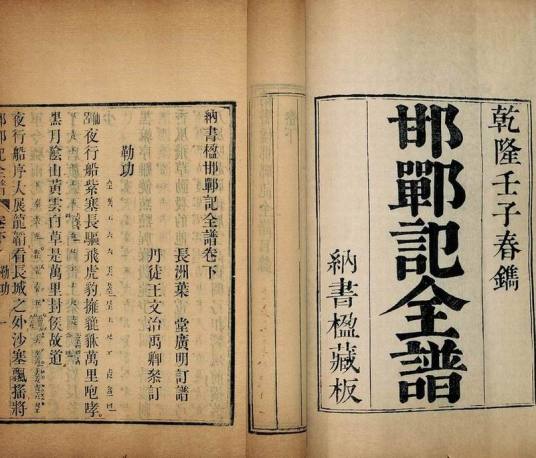 乾隆壬子春鐫
邯鄲記全譜
納書楹藏板
納書楹邯鄲記全譜卷下
長洲葉堂廣明訂譜
丹徒王文治禹卿參訂
勒功
夜行船紫塞長驅飛虎豹擁貔貅萬里咆哮
黑月陰山黃雲白草是萬里封侯故道
夜行船序大展龍韜看長城之外沙塞飄搖將
邯鄲記全譜 卷下 勒功 一